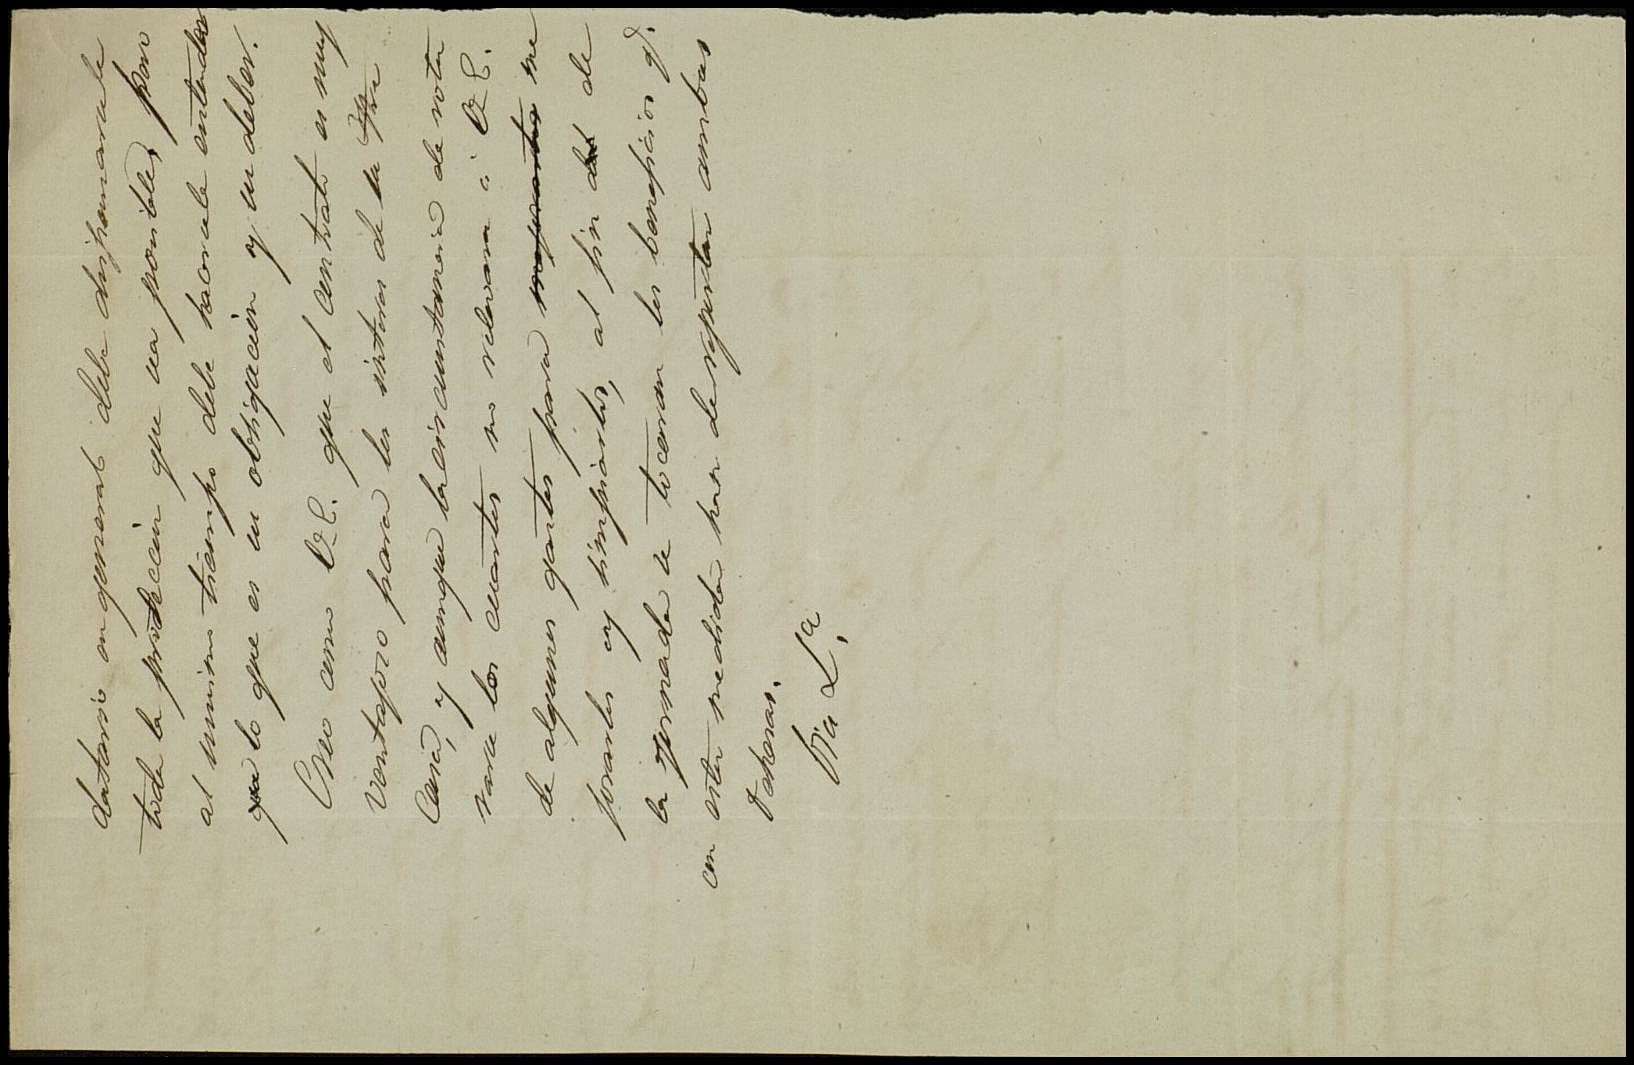 datario en general debe dispensarsele
toda la protección que sea posible, pero
al mismo tiempo debe hacerle entender
que lo que es su obligación y su deber.
Creo como V. E. que el contrato es muy
ventajoso para los intereses de su
Casa, y aunque la circunstancia de rotu
rarse los cuartos no relevara á V. E.
de algunos gastos para me
jorarlos y limpiarlos, al fin de
la jornada se tocaran los beneficios q.
con esta medida han de reportar ambas
Dehesas.